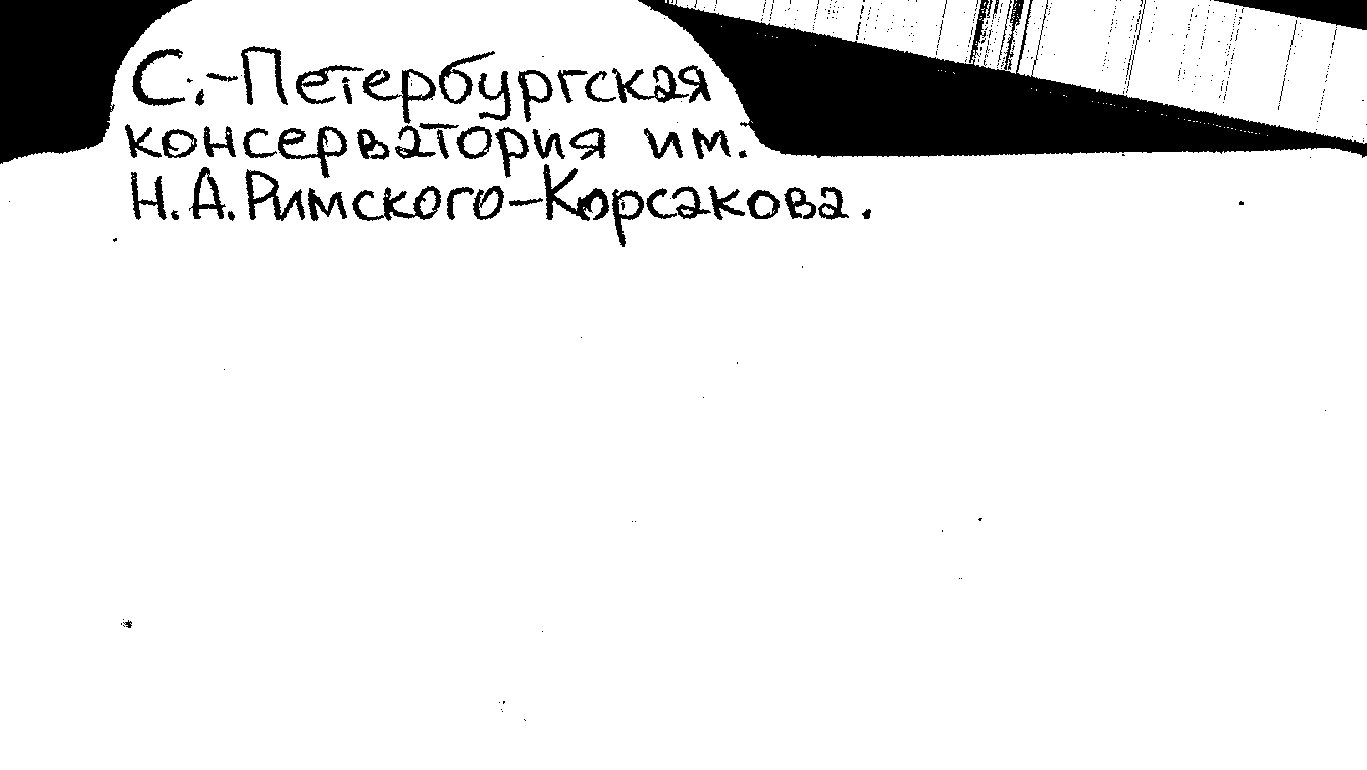 С.-Петербургская
консерватория им.
Н.А.Римского-Корсакова.